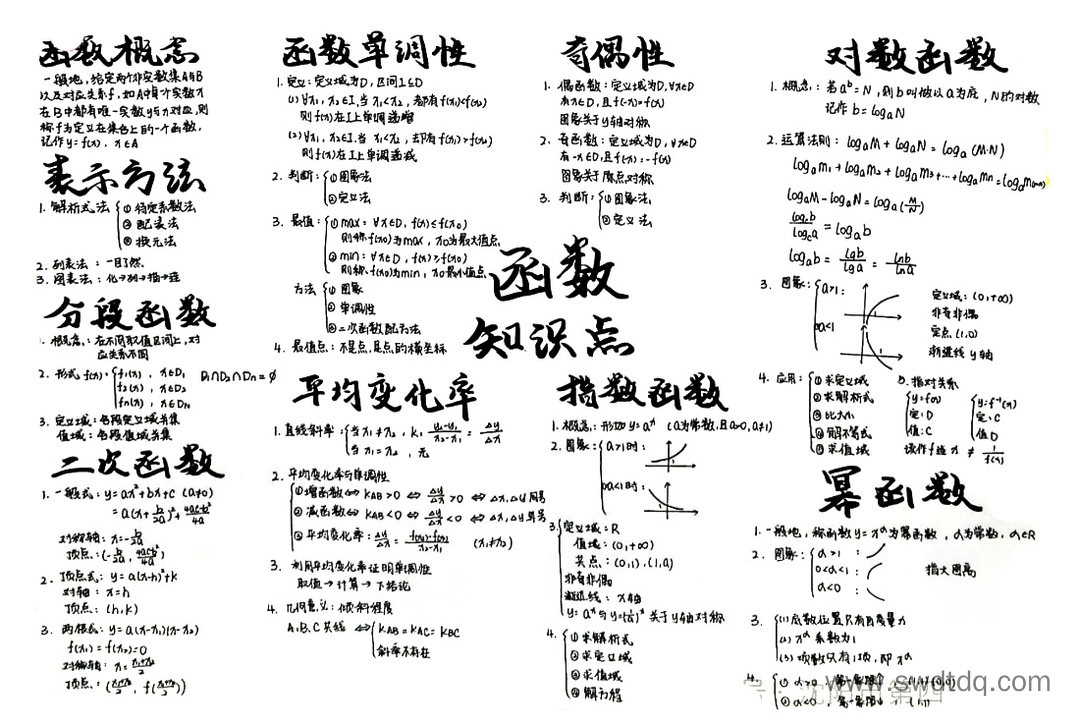 函数概念
一般地,给定两个非空实数集A与B
以及对应关系f,如A中每个实数x
在B中都有唯一实数y与x对应,则
称f为定义在集合上的一个函数,
记作y=f(x), x∈A
表示方法
1. 解析式法 ① 待定系数法
② 配凑法
③ 换元法
2. 列表法:一目了然
3. 图表法:化→列→描→连
分段函数
1. 概念:在不同取值区间上,对
应关系不同
2. 形式 f(x)= f₁(x), x∈D₁ D₁∩D₂∩Dn=∅
f₂(x), x∈D₂
f₃(x), x∈DN
3. 定义域:各段定义域并集
值域:各段值域并集
二次函数
1. 一般式: y=ax²+bx+c (a≠0)
=a(x+b/2a)²+(4ac-b²)/4a
对称轴: x=-b/2a
顶点:(-b/2a, (4ac-b²)/4a)
2. 顶点式: y=a(x-h)²+k
对轴: x=h
顶点: (h,k)
3. 两根式: y=a(x-x₁)(x-x₂)
f(x₁)=f(x₂)=0
对称轴: x=(x₁+x₂)/2
顶点: ((x₁+x₂)/2, f((x₁+x₂)/2))
函数单调性
1. 定义:定义域为D,区间I⊆D
(1)∀x₁, x₂∈I,当x₁<x₂, 都有f(x₁)<f(x₂)
则f(x)在I上单调递增
(2)∀x₁, x₂∈I.当x₁<x₂, 却有f(x₁)>f(x₂)
则f(x)在I上单调递减
2. 判断: ①图象法
②定义法
3. 最值: ① max: ∀x∈D, f(x)≤f(x₀)
则称f(x₀)为max, x₀为最大值点
② min: ∀x∈D, f(x)≥f(x₀)
则称f(x₀)为min, x₀最小值点
方法 ① 图象
② 单调性
③ 二次函数配方法
4. 最值点:不是点,是点的横坐标
函数
知识点
平均变化率
1. 直线斜率: 当x₁≠x₂, k: (y₂-y₁)/(x₂-x₁)=Δy/Δx
当x₁=x₂, 无
2. 平均变化率与单调性
①增函数⇔KAB>0⇔Δy/Δx>0⇔Δx,Δy同号
②减函数⇔KAB<0⇔Δy/Δx<0⇔Δx,Δy异号
③平均变化率: Δy/Δx=(f(x₂)-f(x₁))/(x₂-x₁) (x₁≠x₂)
3. 利用平均变化率证明单调性
取值→计算→下结论
4. 几何意义:倾斜程度
A、B、C共线⇔ KAB=KAC=KBC
斜率不存在
奇偶性
1. 偶函数:定义域为D, ∀x∈D
有-x∈D,且f(-x)=f(x)
图象关于y轴对称
2. 奇函数:定义域为D, ∀x∈D
有-x∈D,且f(-x)=-f(x)
图象关于原点对称
3. 判断: ①图象法
②定义法
指数函数
1.概念:形如y=aˣ (a为常数,且a>0,a≠1)
2. 图象: a>1时: 1
0<a<1时: 1
3.定义域:R
值域:(0,+∞)
关点:(0,1),(1,a)
非奇非偶
渐近线:x轴
y=aˣ与y=(1/a)ˣ关于y轴对称
4. ①求解析式
②求定义域
③求值域
④解方程
对数函数
1. 概念:若aᵇ=N, 则b叫做以a为底, N的对数
记作b=logaN
2. 运算法则: logaM+logaN=loga(M·N)
logam₁+logam₂+logam₃+…+logamn=loga(m₁…mn)
logaM-logaN=loga(M/N)
logcb/logca=logab
logab=lgb/lga=lnb/lna
3. 图象: a>1: 定义域:(0,+∞)
非奇非偶
0<a<1 定点(1,0)
渐近线y轴
4. 应用: ①求定义域
②求解析式
③比大小
④解不等式
⑤求值域
5. 指对关系
y=f(x) y=f⁻¹(x)
定:D 定:C
值:C 值D
读作f逆x≠1/f(x)
幂函数
1.一般地,称函数y=xᵅ为幂函数, α为常数, α∈R
2. 图象: α>1:
0<α<1: 指大图高
α<0:
3. (1)底数位置只有自变量x
(2)xᵅ系数为1
(3)项数只有1项,即xᵅ
4. ① α>0 第一象限↑ (1,1)(0,0)
② α<0, 第一象限↓ (1,1)
www.swdtdq.com